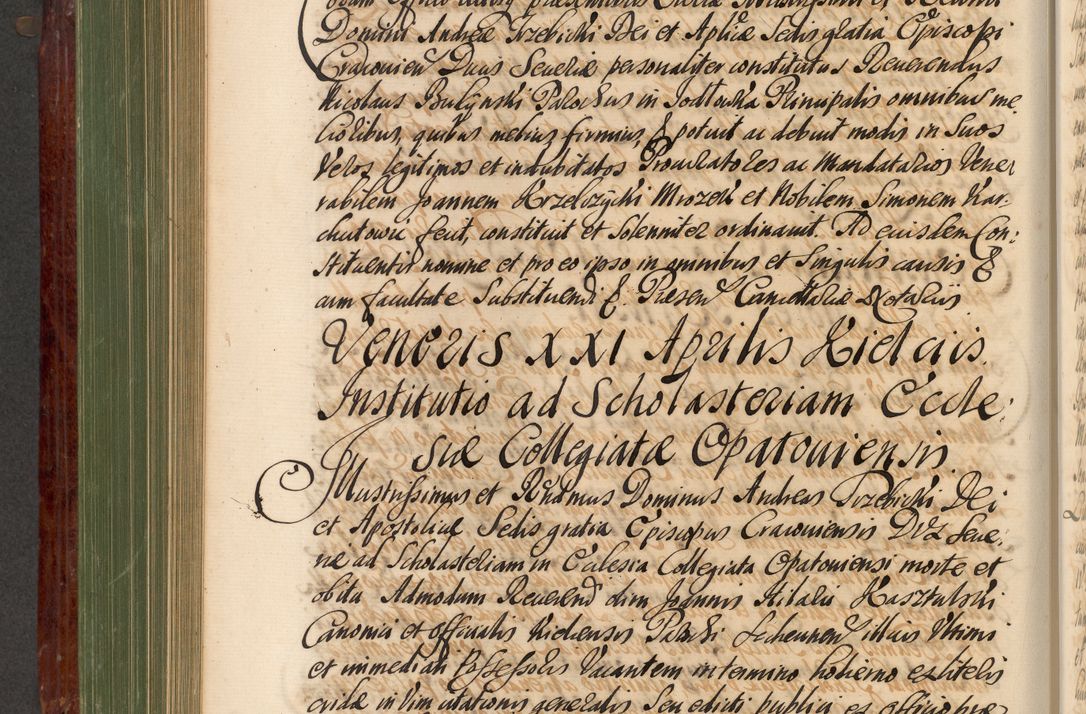 Domini Andreæ Trzebicki Dei et Aplicæ Sedis gratia Episcopi
Cracovien Ducis Severiæ personaliter constitutus Reverendus
Nicolaus Bulynski Parochus in Jodłowka Principalis omnibus me
lioribus, quibus melius firmius, & potuit ac debuit modis in Suos
Veros legitimos et indubitatos Procuratores ac Mandatarios Vene
rabilem Joannem Krzelczycki Mrozek et Nobilem Simonem Kar-
chutowic fecit, constituit et Solenniter ordinavit. Ad eiusdem Con:
stituentis nomine et pro eo ipso in omnibus et Singulis causis &
cum facultate Substituendi &. Presen Cancellariæ Notariis
Veneris XXI Aprilis Kielciis
Institutio ad Scholasteriam Eccle:
siæ Collegiatæ Opatoviensis
Illustrissimus et Rndmus Dominus Andreas Trzebicki Dei
et Apostolicæ Sedis gratia Episcopus Cracoviensis Dux Seve:
riæ ad Scholasteriam in Ecclesia Collegiata Opatoviensi morte et
obitu Admodum Reverend olim Joannis Hilarii Kasztelski
Canonici et officialis Kielcensis Parochi illius Ultimi
et immediati Possessoris Vacantem in termino hodierno ex literis
cridæ in Vim citationis generalis Seu edicti publici ex officio